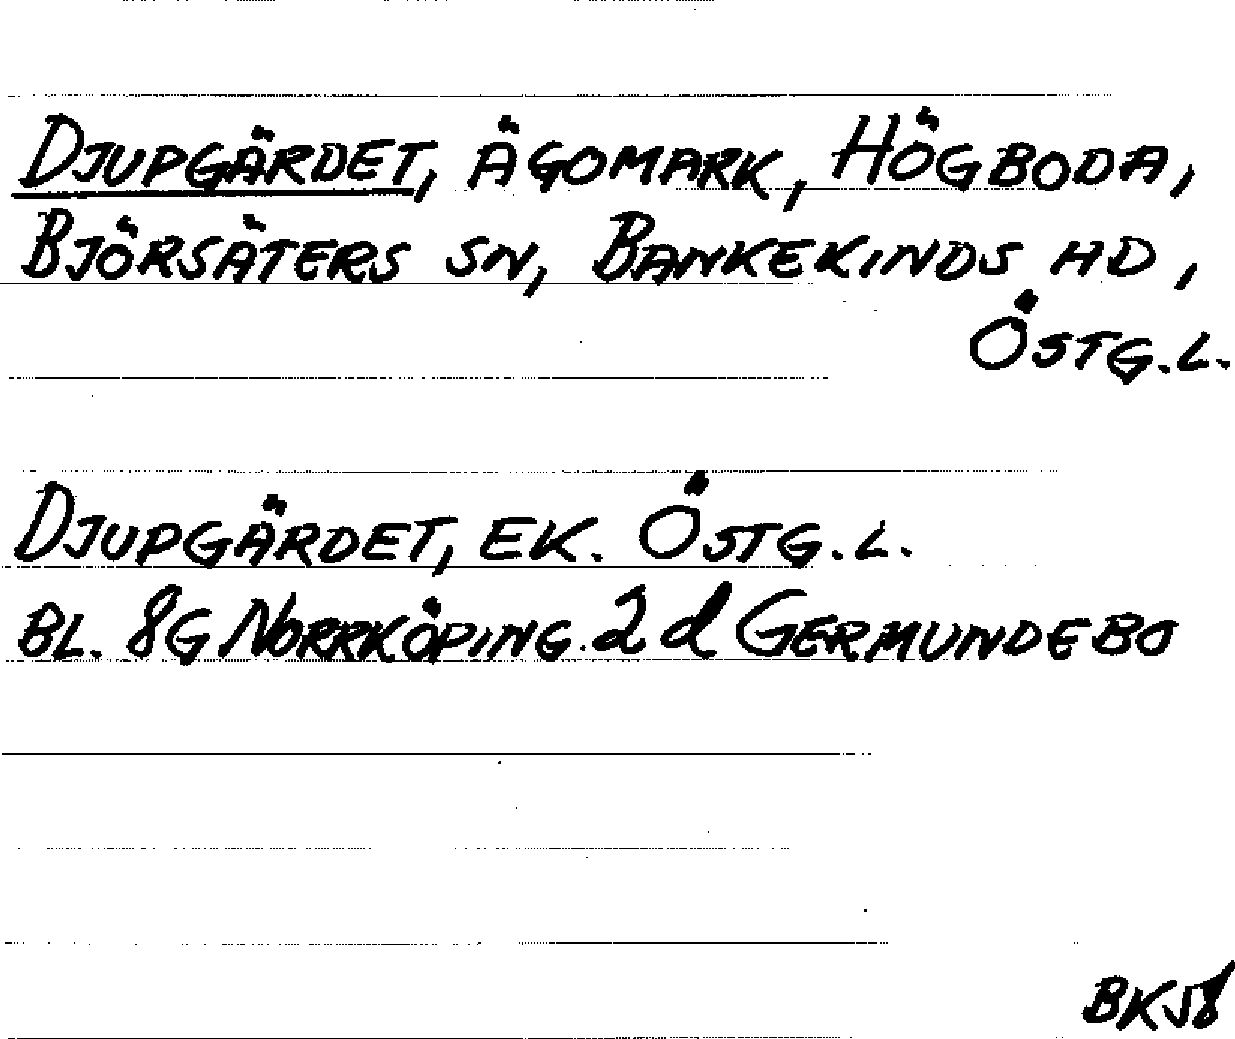 DJUPGÄRDET, ÄGOMARK, HÖGBODA,
BJÖRSÄTERS SN, BANKEKINDS HD,
ÖSTG.L.
DJUPGÄRDET, EK. ÖSTG.L.
BL. 8G NORRKÖPING. 2d GERMUNDEBO